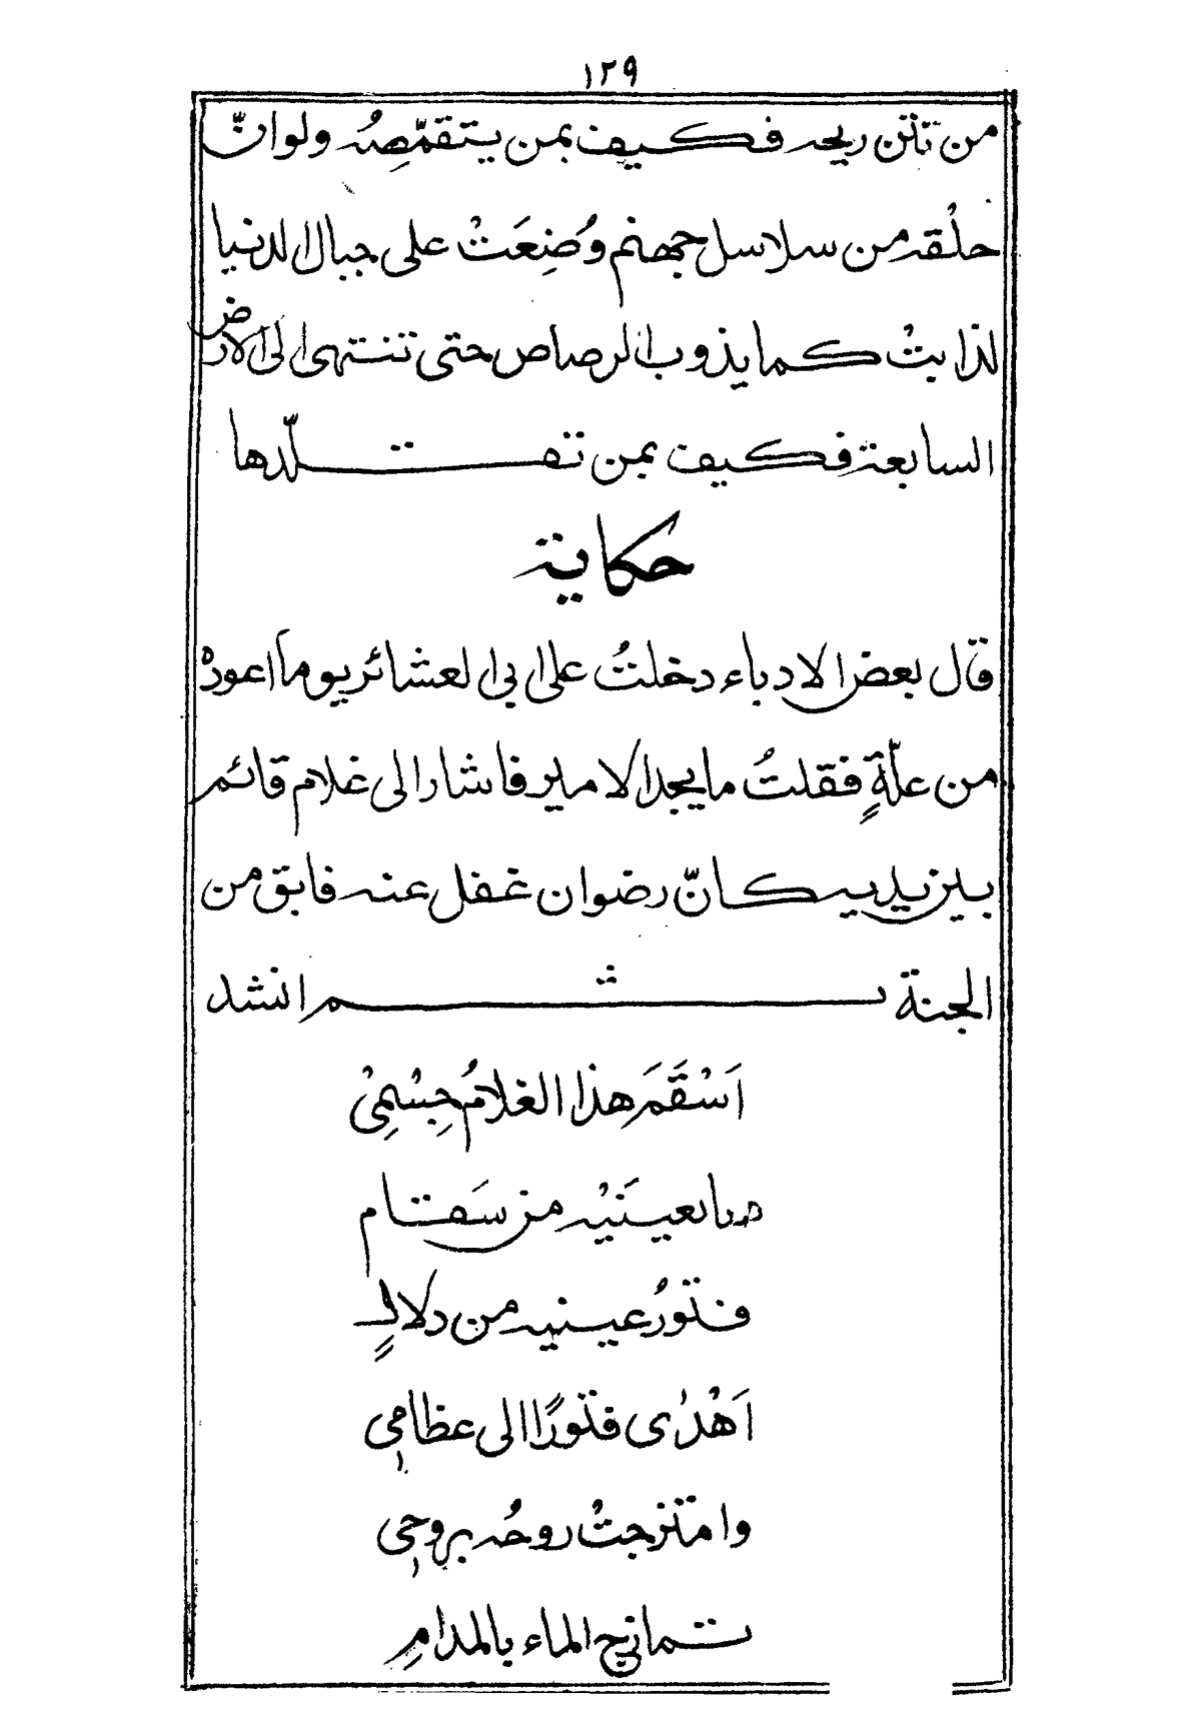 ١٢٩
من نتن ريحه فكيف بمن يتقمّصُه ولو انّ
حلْقه من سلاسل جهنم وُضِعَتْ على جبال الدنيا
لذابتْ كما يذوب الرصاص حتى تنتهى الى الارض
السابعة فكيف بمن تقلّدها
حكاية
قال بعض الادباء دخلتُ على ابى العشائر يوماً اعودهْ
من علّةٍ فقلتُ ما يجد الامير فاشار الى غلام قائم
بين يديه كانّ رضوان غفل عنه فابق من
الجنة ثم انشد
اَسْقَمَ هذا الغلامُ جِسْمِىْ
بعينَيْه من سَقام
فتورُ عينيه من دلالٍ
اَهْدٰى فتورًا الى عظامِى
وامتزجتْ روحُه بروحِى
تمازجَ الماء بالمدامِ